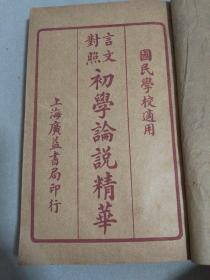 國民學校適用
言文對照
初學論說精華
上海廣益書局印行